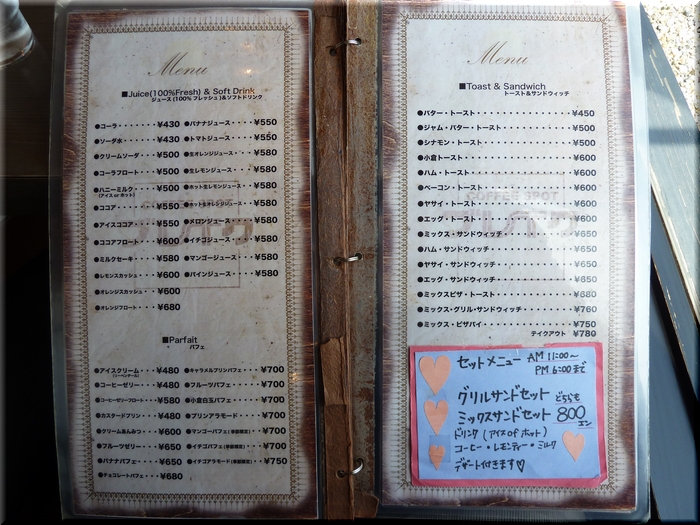 Menu
■Juice(100%Fresh) & Soft Drink
ジュース(100%フレッシュ)&ソフトドリンク
●コーラ・・・・・・¥430
●ソーダ水・・・・・¥430
●クリームソーダ・・・¥500
●コーラフロート・・・¥500
●ハニーミルク・・・¥500
(アイス or ホット)
●ココア・・・・・・¥550
●アイスココア・・・¥550
●ココアフロート・・・¥600
●ミルクセーキ・・・¥580
●レモンスカッシュ・・¥600
●オレンジスカッシュ・・¥600
●オレンジフロート・・¥680
●バナナジュース・・・¥550
●トマトジュース・・・¥550
●生オレンジジュース・・¥580
●生レモンジュース・・¥580
●ホット生レモンジュース・・¥580
●ホット生オレンジジュース・¥580
●メロンジュース・・・¥580
●イチゴジュース・・・¥580
●マンゴージュース・・¥580
●パインジュース・・・¥580
■Parfait
パフェ
●アイスクリーム・・・¥480
●コーヒーゼリー・・・¥480
●コーヒーゼリーフロート・・¥580
●カスタードプリン・・¥480
●クリームあんみつ・・¥600
●フルーツゼリー・・・¥650
●バナナパフェ・・・¥650
●チョコレートパフェ・・¥680
●キャラメルプリンパフェ・¥700
●フルーツパフェ・・・¥700
●小倉白玉パフェ・・・¥700
●プリンアラモード・・・¥700
●マンゴーパフェ(季節限定)・¥700
●イチゴパフェ(季節限定)・・¥700
●イチゴアラモード(季節限定)・¥750
Menu
■Toast & Sandwich
トースト&サンドウィッチ
●バター・トースト・・・・・・¥450
●ジャム・バター・トースト・・・・・・¥500
●シナモン・トースト・・・・・・¥500
●小倉トースト・・・・・・¥600
●ハム・トースト・・・・・・¥600
●ベーコン・トースト・・・・・・¥600
●ヤサイ・トースト・・・・・・¥600
●エッグ・トースト・・・・・・¥600
●ミックス・サンドウィッチ・・・・・・¥650
●ハム・サンドウィッチ・・・・・・¥650
●ヤサイ・サンドウィッチ・・・・・・¥650
●エッグ・サンドウィッチ・・・・・・¥650
●ミックスピザ・トースト・・・・・・¥680
●ミックス・グリル・サンドウィッチ・・・・¥760
●ミックス・ピザパイ・・・・・・¥750
テイクアウト ¥780
セットメニュー AM 11:00〜
PM 6:00まで
グリルサンドセット どちらも
ミックスサンドセット 800エン
ドリンク(アイス of ホット)
コーヒー・レモンティー・ミルク
デザート付きます♡